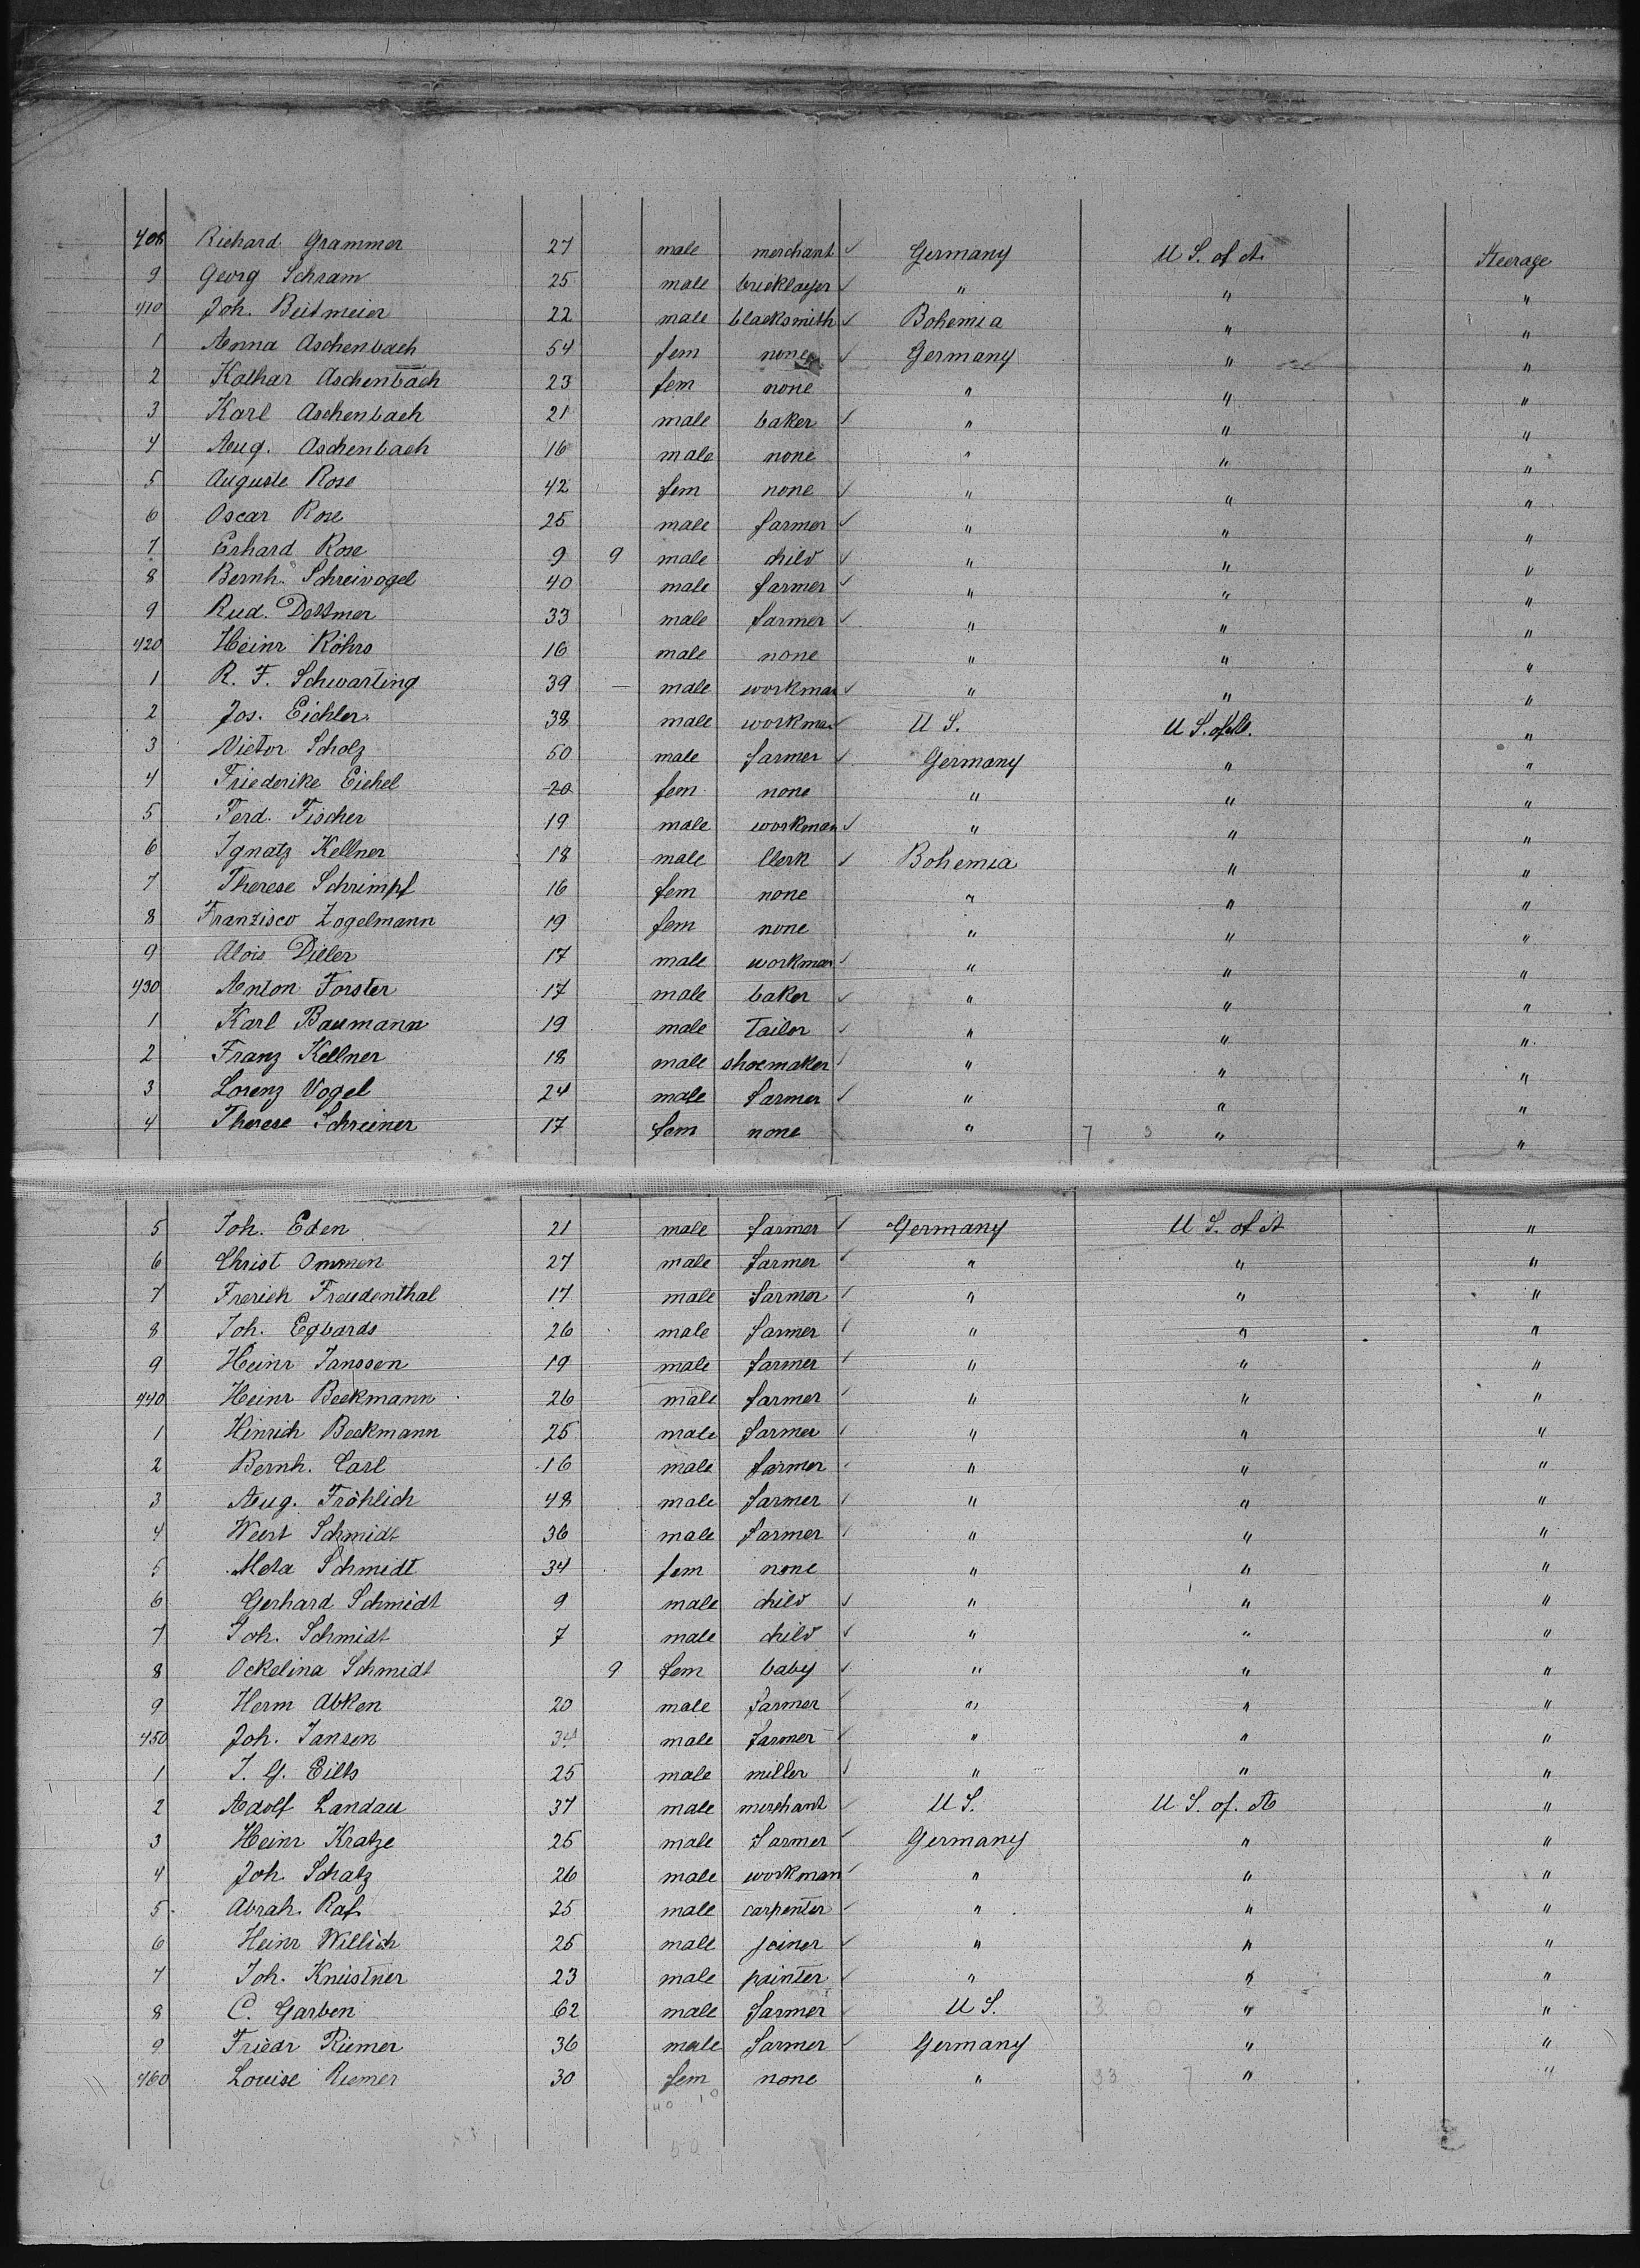 408 Richard Grammer 27 male merchant ✓ Germany U S. of A. Steerage
9 Georg Schram 25 male bricklayer ✓ " " "
410 Joh. Beitmeier 22 male blacksmith ✓ Bohemia " "
1 Anna Aschenbach 54 fem none ✓ Germany " "
2 Kathar Aschenbach 23 fem none " " "
3 Karl Aschenbach 21 male baker ✓ " " "
4 Aug. Aschenbach 16 male none " " "
5 Auguste Rose 42 fem none ✓ " " "
6 Oscar Rose 25 male farmer ✓ " " "
7 Erhard Rose 9 9 male child ✓ " " "
8 Bernh. Schreivogel 40 male farmer ✓ " " "
9 Rud. Dettmer 33 male farmer ✓ " " "
420 Heinr Röhrs 16 male none " " "
1 R. F. Schwarting 39 — male workman ✓ " " "
2 Jos. Eichler 38 male workman ✓ U S. U S. of A. "
3 Victor Scholz 50 male farmer ✓ Germany " "
4 Friederike Eichel 20 fem none " " "
5 Ferd. Fischer 19 male workman ✓ " " "
6 Ignatz Kellner 18 male Clerk ✓ Bohemia " "
7 Therese Schrimpf 16 fem none " " "
8 Franzisco Zogelmann 19 fem none " " "
9 Alois Dieler 17 male workman ✓ " " "
430 Anton Forster 17 male baker ✓ " " "
1 Karl Baumann 19 male Tailor ✓ " " "
2 Franz Kellner 18 male shoemaker ✓ " " "
3 Lorenz Vogel 24 male farmer ✓ " " "
4 Therese Schreiner 17 fem none " 7 3 " "
5 Joh. Eden 21 male farmer ✓ Germany U S. of A "
6 Christ Ommen 27 male farmer ✓ " " "
7 Frerich Freudenthal 17 male farmer ✓ " " "
8 Joh. Egbards 26 male farmer ✓ " " "
9 Heinr Janssen 19 male farmer ✓ " " "
440 Heinr Beekmann 26 male farmer ✓ " " "
1 Hinrich Beekmann 25 male farmer ✓ " " "
2 Bernh. Carl 16 male farmer " " "
3 Aug. Fröhlich 48 male farmer ✓ " " "
4 Weert Schmidt 36 male farmer ✓ " " "
5 Meta Schmidt 34 fem none " " "
6 Gerhard Schmidt 9 male child ✓ " " "
7 Joh. Schmidt 7 male child ✓ " " "
8 Ockelina Schmidt 9 fem baby ✓ " " "
9 Herm Abken 20 male farmer ✓ " " "
450 Joh. Jansen 34 male farmer ✓ " " "
1 J. G. Eilts 25 male miller ✓ " " "
2 Adolf Landau 37 male merchant ✓ U S. U S. of. A "
3 Heinr Kratze 25 male farmer ✓ Germany " "
4 Joh Schatz 26 male workman ✓ " " "
5 Abrah. Raf 25 male carpenter ✓ " " "
6 Heinr Willich 25 male joiner ✓ " " "
7 Joh. Knüstner 23 male painter ✓ " " "
8 C. Garben 62 male farmer ✓ U S. 3 0 " "
9 Friedr Riemer 36 male farmer ✓ Germany " "
460 Louise Riemer 30 fem none " 33 7 " "
40 10
50